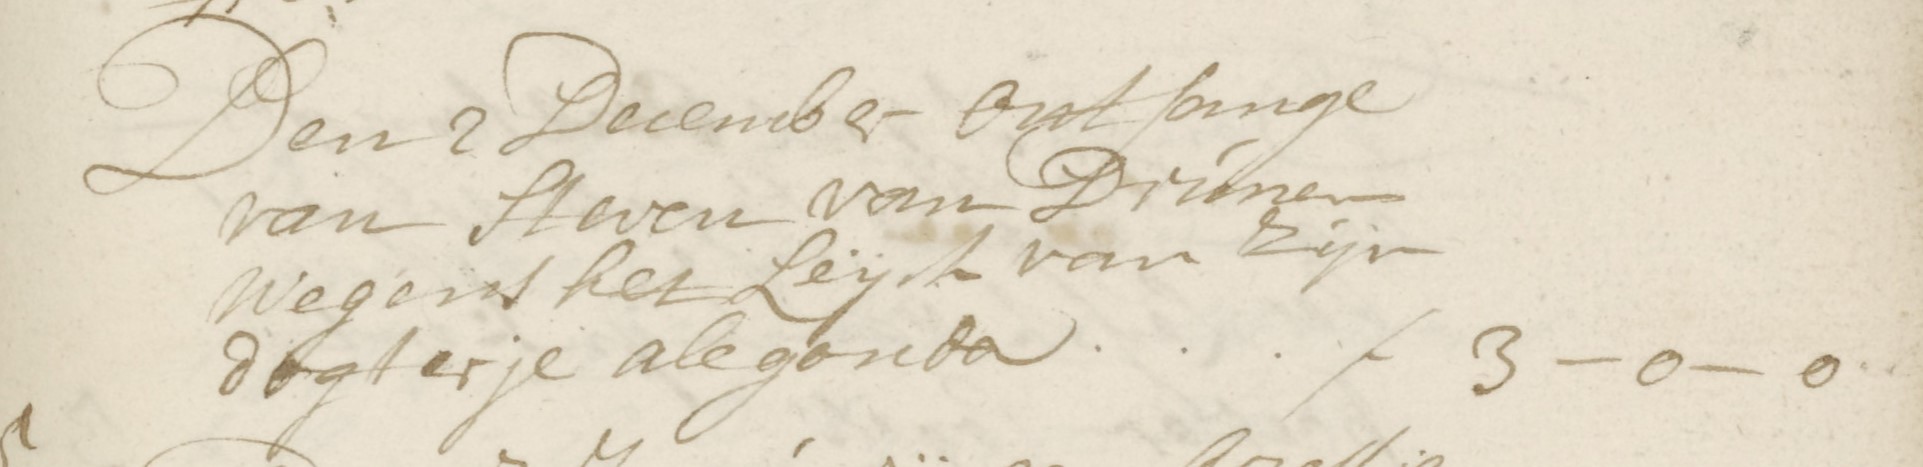 Den 2 December ontfange
van Steven van Drúnen
wegens het Leÿck van Zijn
dogterje alegonda . . . f 3 - 0 - 0